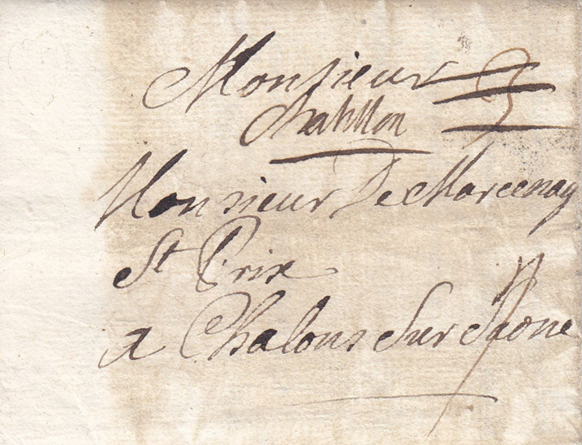 Monsieur
Chatillon
Monsieur De Marcenay
St Prix
a Chalons Sur Saone